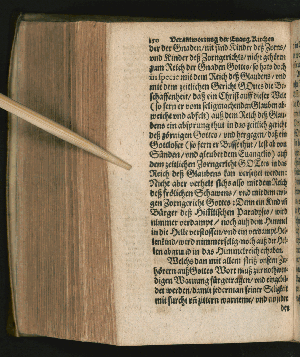 150 Verantwortung der Evang. Kirchen
der der Gnaden / mit sind Kinder deß Zorns /
und Kinder deß Zorngerichts / nicht gehören
zum Reich der Gnaden Gottes / so hats doch
in specie mit dem Reich deß Glaubens / und
mit dem zeitlichen Gericht Gottes die Be-
schaffenheit / daß ein Christ auß dieser Welt
(so fern er vom seligmachenden Glauben ab-
weicht und abfelt) auß dem Reich deß Glau-
bens ein absprung thut in das zeitlich gericht
deß zornigen Gottes / und hergegen / daß ein
Gottloser (so fern er Busse thut / lest ab von
Sünden / und gleubet dem Euangelio) auß
dem zeitlichen Zorngericht GOttes in das
Reich deß Glaubens kan versetzet werden:
Nicht aber verhelt sichs also mit dem Reich
deß frölichen Schawens / und mit dem ewi-
gen Zorngericht Gottes: Denn ein Kind uñ
Bürger deß Himlischen Paradyses / wird
nimmer verdampt / noch auß dem Himmel
in die Helle verstossen / und ein verdampt Hel-
lenkind / wird nimmer selig / noch auß der Hel-
len ab und in das Himmelreich erhaben.
Welchs dan mit allem fleiß unsern Zu-
hörern auß Gottes Wort muß zur nothwen-
digen Warnung fürgetragen / und eingebil-
det werden / damit jederman seiner Seligkeit
mit furcht uñ zittern warneme / und
den